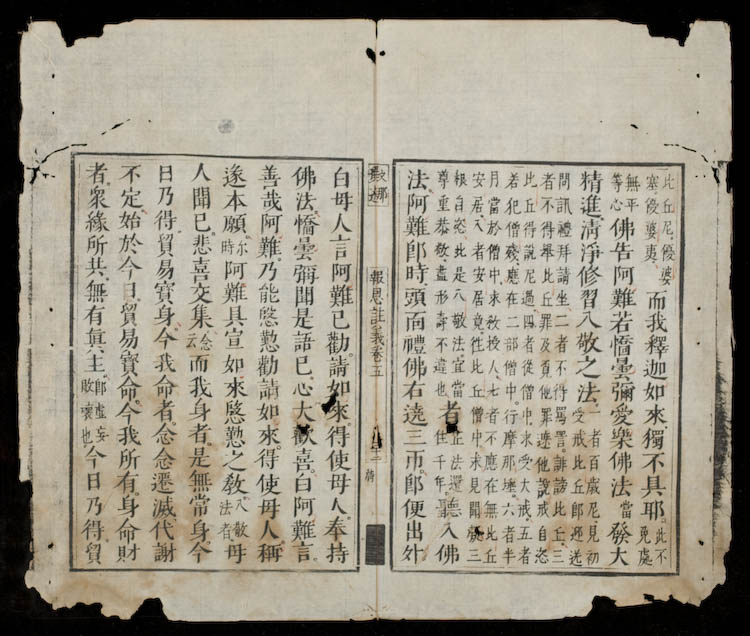 比丘尼優婆
塞優婆夷
而我釋迦如來獨不具耶
此不
見處
無平
等心
佛告阿難若憍曇彌愛樂佛法當發大
精進清淨修習八敬之法
一者百歲尼見初
受戒比丘即迎送
問訊禮拜請坐二者不得罵詈誹謗比丘三
者不得舉比丘罪及覓他罪遮他說戒自恣
比丘得說尼過四者從僧中求受大戒五者
若犯僧殘應在二部僧中行摩那埵六者半
月當於僧中求教授人七者不應在無比丘
安居八者安居竟徃比丘僧中求見聞疑三
根自恣此是八敬法宜當
尊重恭敬盡形壽不違也
者
正法還
住千年
聽入佛
法阿難即時頭面禮佛右遶三帀即便出外
報恩註義卷五
白母人言阿難已勸請如來得使母人奉持
佛法憍曇彌聞是語已心大歡喜白阿難言
善哉阿難乃能慇懃勸請如來得使母人稱
遂本願
尓
時
阿難具宣如來慇懃之教
八敬
法者
母
人聞已悲喜交集
念
云
而我身者是無常身今
日乃得貿易寶身今我命者念念遷滅代謝
不定始於今日貿易寶命今我所有身命財
者衆緣所共無有眞主
即虛妄
敗壞也
今日乃得貿